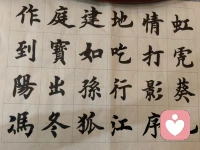 虹霓葵
情打影序
地吃行江
建如孫狐
庭寶出冬
作到陽馮